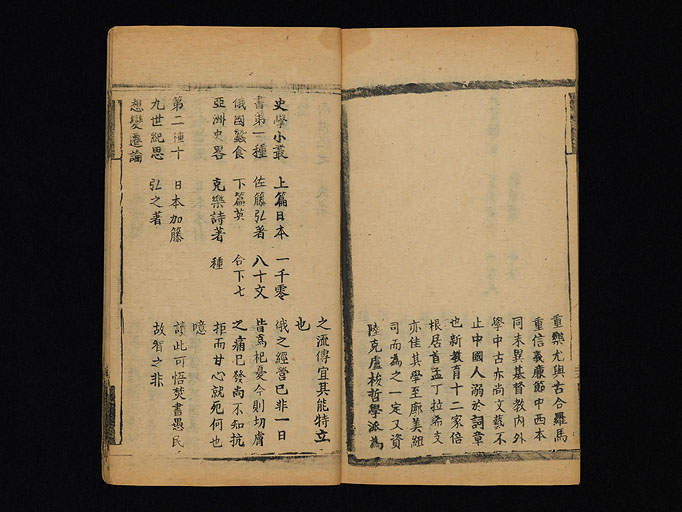 重樂尤與古合羅馬
重信義廉節中西本
同未異基督教内外
學中古亦尚文藝不
止中國人溺於詞章
也新教育十二家倍
根居首孟丁拉㠻支
亦佳其學至廊美紐
司而為之一定又資
陸克盧梭哲學派為
之流傳宜其能特立
也
史學小叢 上篇日本 一千零
書第一種 佐籐弘著 八十文
俄國蠶食 下篇英 合下七
亞洲史畧 克樂詩著 種
俄之經營已非一日
皆為杞憂今則切膚
之痛已發尚不知抗
拒而甘心就死何也
噫
第二種十 日本加籐
九世紀思 弘之著
想變遷論
讀此可悟焚書愚民
故智之非